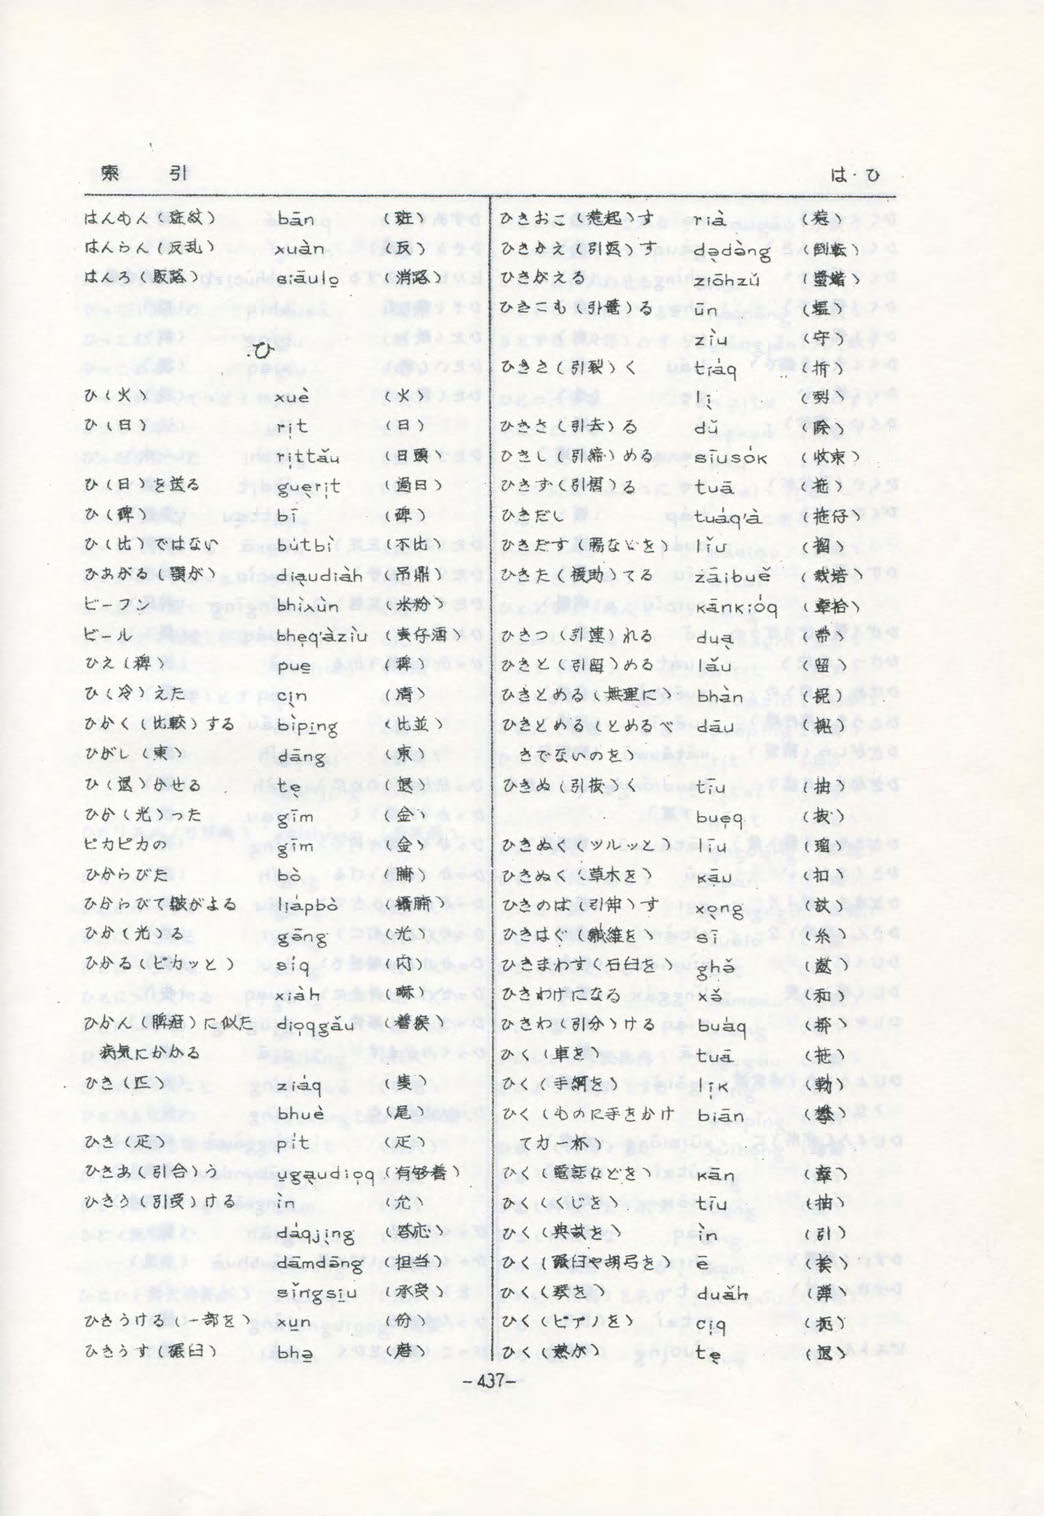 索 引
は・ひ
はんもん（斑紋） bān （斑）
はんらん（反乱） xuàn （反）
はんろ（販路） siāulo̱ （消路）
ひ
ひ（火） xuè （火）
ひ（日） ri̍t （日）
ri̍ttǎu （日頭）
ひ（日）を送る gue̱ri̍t （過日）
ひ（碑） bī （碑）
ひ（比）ではない bútbì （不比）
ひあがる（顎が） dia̱udiàh （吊鼎）
ビーフン bhìxùn （米粉）
ビール bhe̍q'àzìu （麦仔酒）
ひえ（稗） pue̱ （稗）
ひ（冷）えた cìn （凊）
ひかく（比較）する bìpi̱ng （比並）
ひがし（東） dāng （東）
ひ（退）かせる te̱ （退）
ひか（光）った gīm （金）
ピカピカの gīm （金）
ひからびた bò （脯）
ひからびて皺がよる liápbò （攝脯）
ひか（光）る gōng （光）
ひかる（ピカッと） síq （閃）
xiàh
ひかん（脾疳）に似た dio̍qgǎu （着猴）
病気にかかる
ひき（匹） ziáq （隻）
bhuè （尾）
ひき（疋） pít （疋）
ひきあ（引合）う u̱ga̱udio̍q （有够着）
ひきう（引受）ける ìn （允）
dáqji̱ng （答応）
dāmdāng （担当）
sǐngsi̱u （承受）
ひきうける（一部を） xu̱n （份）
ひきうす（碾臼） bhə̱ （磨）
ひきおこ（惹起）す rià （惹）
ひきかえ（引返）す də̱dǝ̀ng （倒転）
ひきがえる ziōhzǔ （螿蜍）
ひきこも（引籠）る ūn （塭）
zìu （守）
ひきさ（引裂）く tiáq （拆）
li̱ （剺）
ひきさ（引去）る dǔ （除）
ひきし（引締）める sīusók （收束）
ひきず（引摺）る tuā （拖）
ひきだし tuáq'à （拖仔）
ひきだす（腸などを） lǐu （摺）
ひきた（援助）てる zāibuě （栽培）
kānkióq （牽拾）
ひきつ（引連）れる dua̱ （帶）
ひきと（引留）める lǎu （留）
ひきとめる（無理に） bhàn （挽）
ひきとめる（とめるべ dāu
きでないのを）
ひきぬ（引抜）く tīu （抽）
bue̍q （抜）
ひきぬく（ツルッと） līu （瑠）
ひきぬく（草木を） ka̱u （扣）
ひきのば（引伸）す xo̱ng
ひきはぐ（繊維を） sī （糸）
ひきまわす（石臼を） ghǒ
ひきわけになる xǒ （和）
ひきわ（引分）ける buáq
ひく（車を） tuā （拖）
ひく（手綱を） li̍k （勒）
ひく（ものに手をかけ biān （攀）
て力一杯）
ひく（電話などを） kān （牽）
ひく（くじを） tīu （抽）
ひく（典故を） ìn （引）
ひく（碾臼や胡弓を） ē （挨）
ひく（琴を） duǎh （弾）
ひく（ピアノを） ci̍q （扼）
ひく（熱が） te̱ （退）
-437-